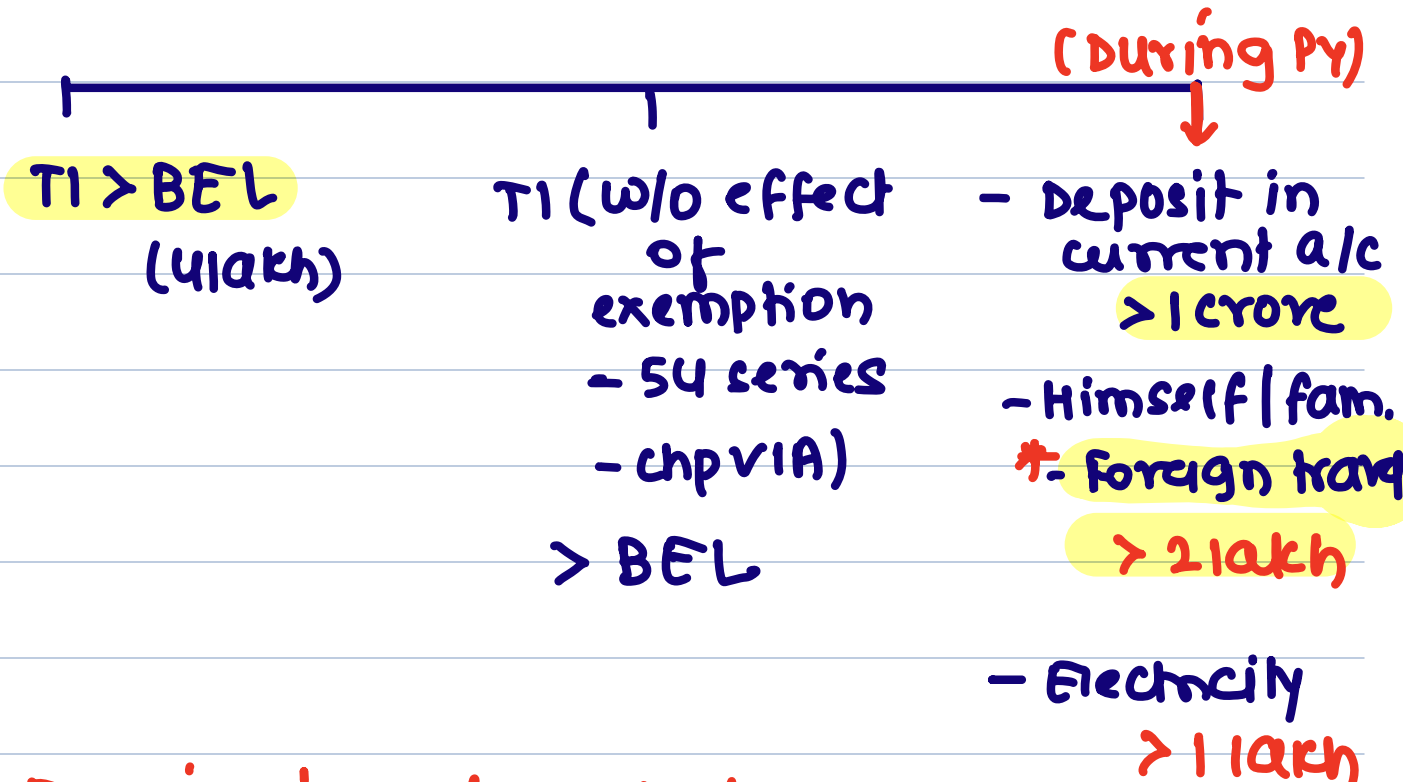 (During PY)
TI > BEL
(4 lakh)
TI (W/O effect
of
exemption
- 54 series
- chp VIA)
> BEL
- Deposit in
current a/c
> 1 crore
- Himself / fam.
*- Foreign
> 2 lakh
- Electricity
> 1 lakh